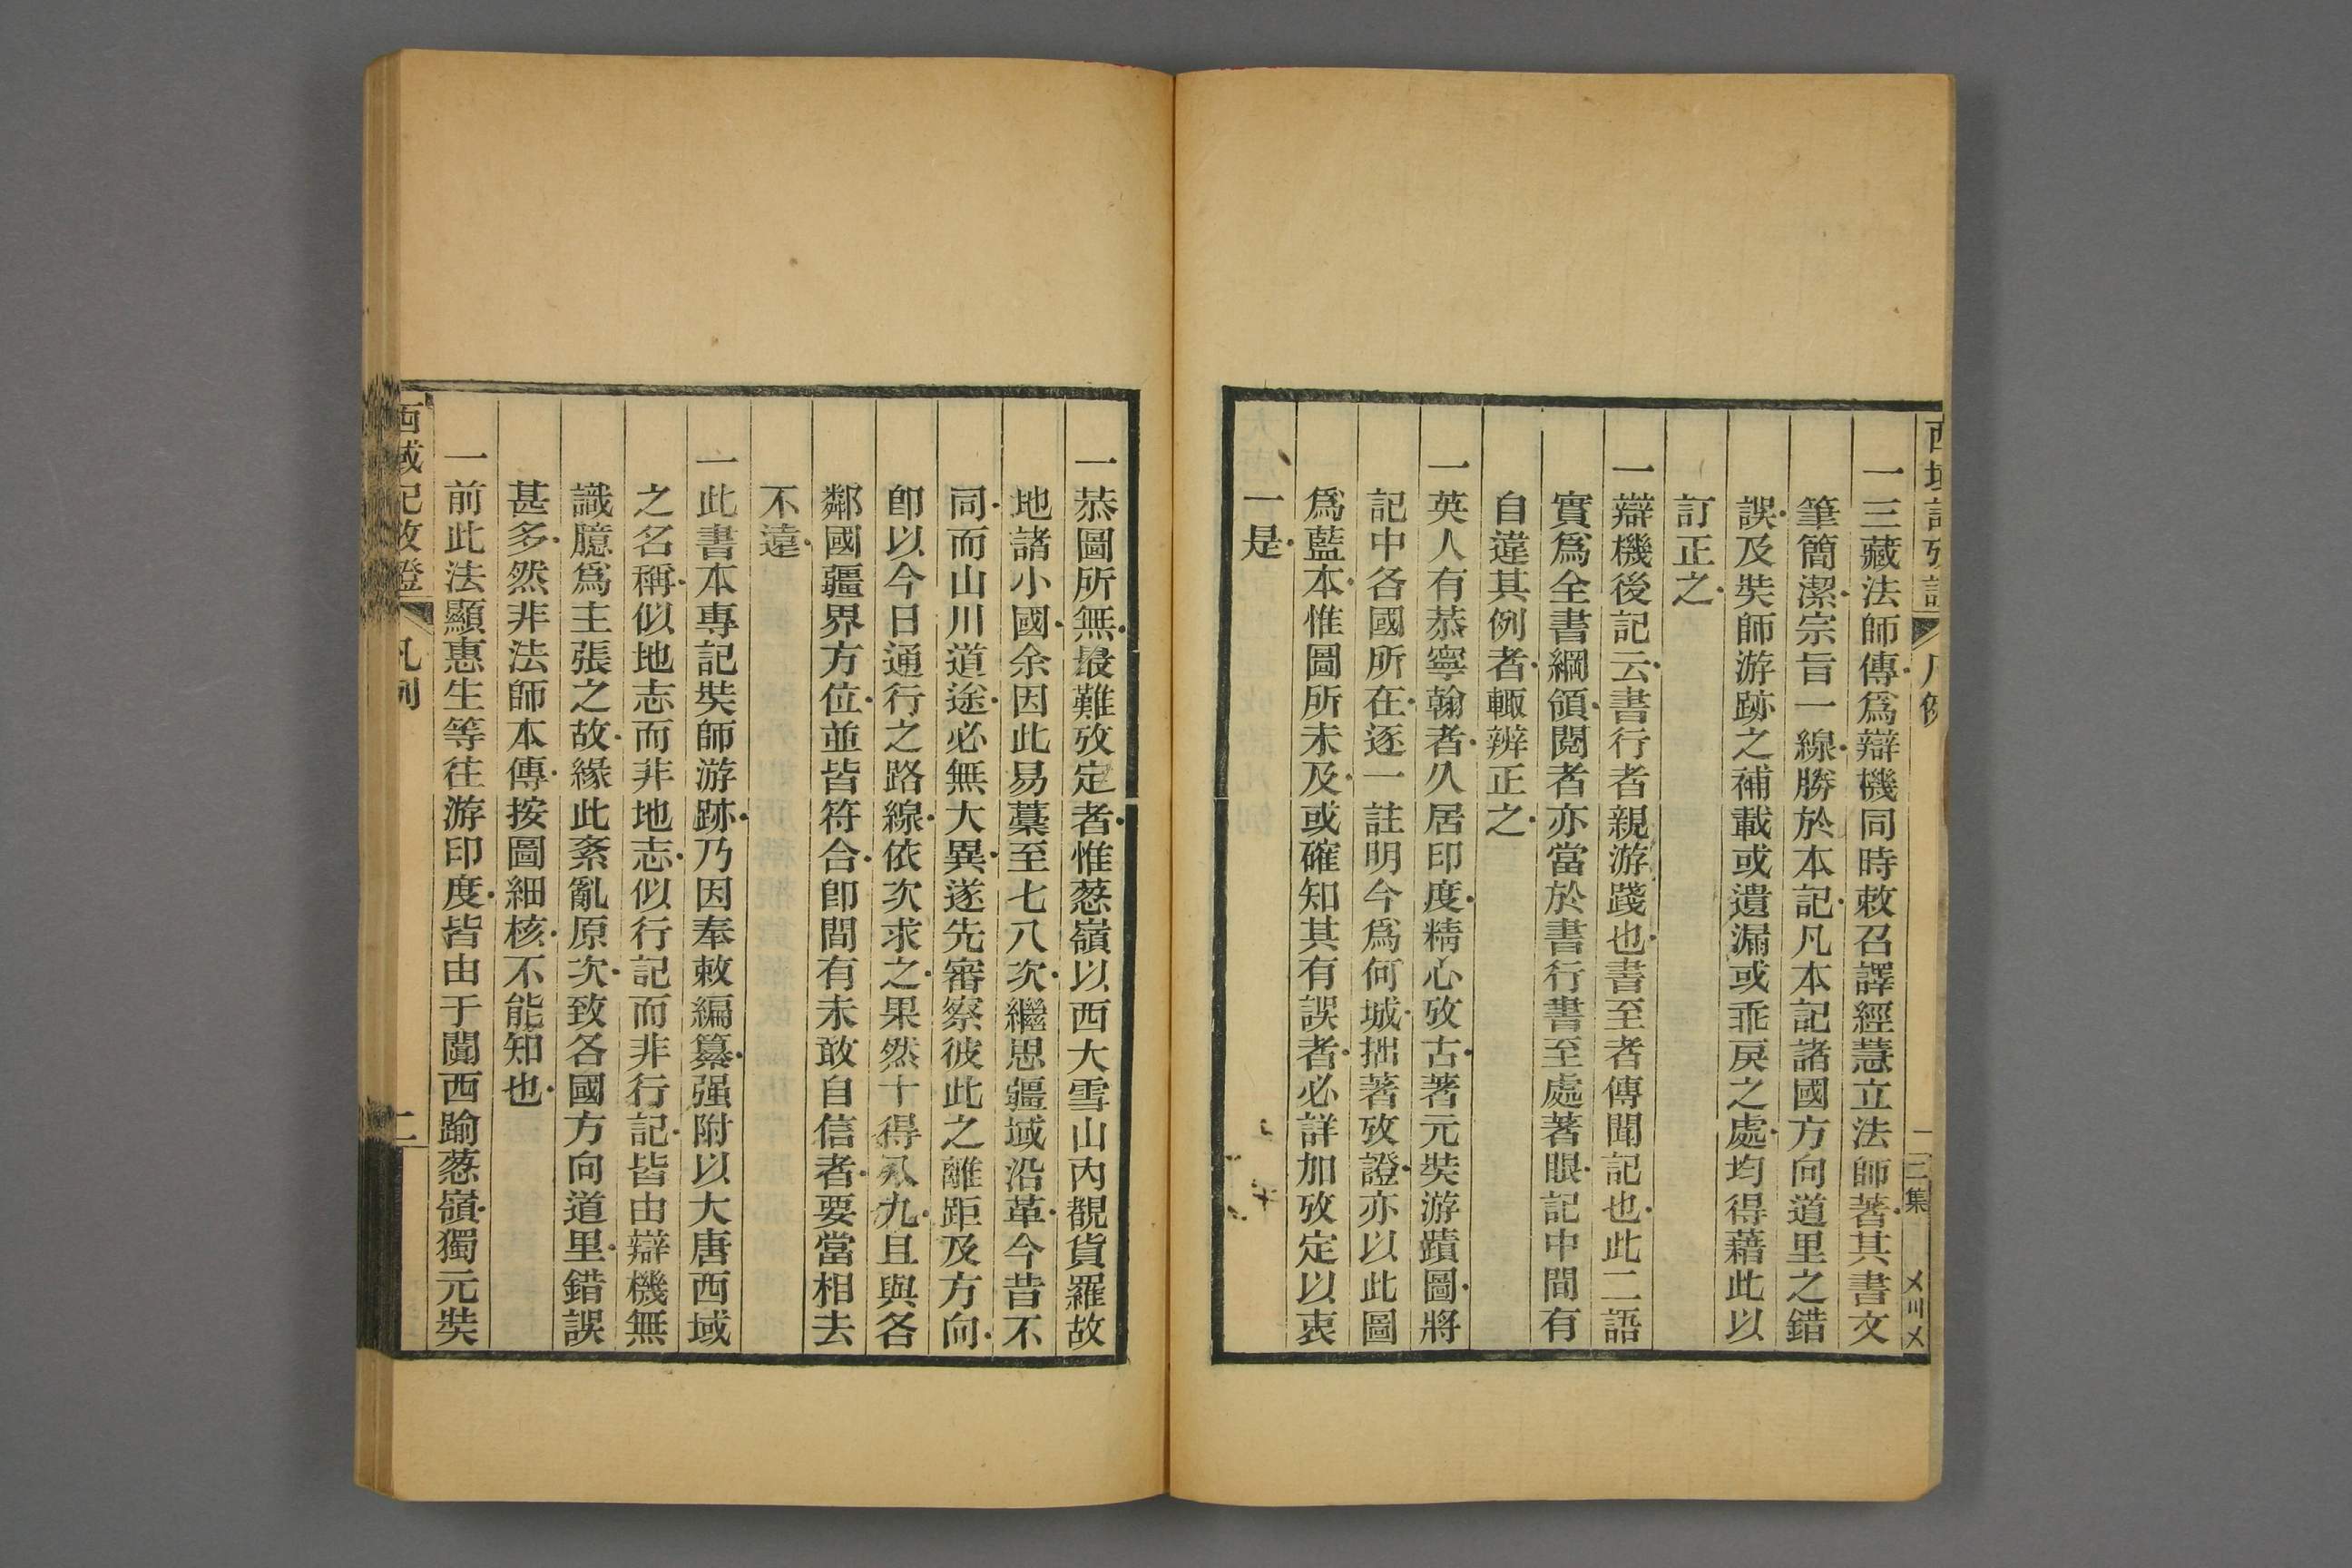 一三藏法師傳爲辯機同時敕召譯經慧立法師著其書文
筆簡潔宗旨一線勝於本記凡本記諸國方向道里之錯
誤及奘師游跡之補載或遺漏或乖戾之處均得藉此以
訂正之
一辯機後記云書行者親游踐也書至者傳聞記也此二語
實爲全書綱領閱者亦當於書行書至處著眼記中間有
自違其例者輒辨正之
一英人有恭寧翰者久居印度精心攷古著元奘游蹟圖將
記中各國所在逐一註明今爲何城拙著攷證亦以此圖
爲藍本惟圖所未及或確知其有誤者必詳加攷定以衷
一是
一恭圖所無最難攷定者惟葱嶺以西大雪山內覩貨羅故
地諸小國余因此易藁至七八次繼思疆域沿革今昔不
同而山川道途必無大異遂先審察彼此之離距及方向
卽以今日通行之路線依次求之果然十得八九且與各
鄰國疆界方位並皆符合卽間有未敢自信者要當相去
不遠
一此書本專記奘師游跡乃因奉敕編纂强附以大唐西域
之名稱似地志而非地志似行記而非行記皆由辯機無
識臆爲主張之故緣此紊亂原次致各國方向道里錯誤
甚多然非法師本傳按圖細核不能知也
一前此法顯惠生等往游印度皆由于闐西踰葱嶺獨元奘
西域記攷證
凡例
二
三集